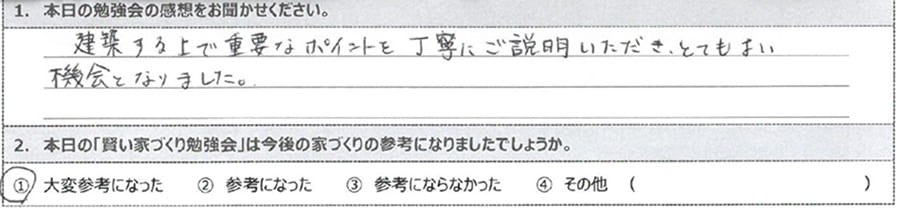 1. 本日の勉強会の感想をお聞かせください。
建築する上で重要なポイントを丁寧にご説明いただき、とてもよい
機会となりました。
2. 本日の「賢い家づくり勉強会」は今後の家づくりの参考になりましたでしょうか。
① 大変参考になった ② 参考になった ③ 参考にならなかった ④ その他 ( )